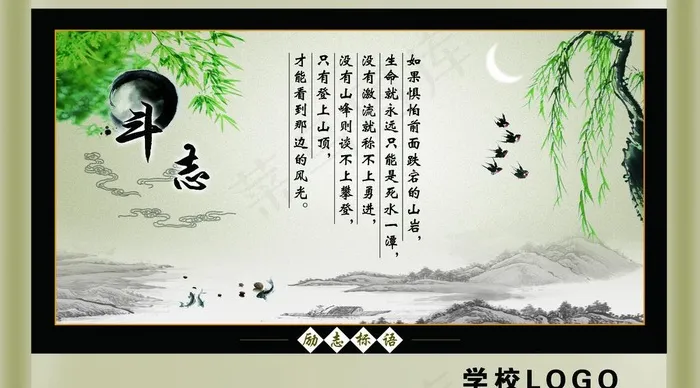 斗志
如果惧怕前面跌宕的山岩，
生命就永远只能是死水一潭，
没有激流就称不上勇进，
没有山峰则谈不上攀登，
只有登上山顶，
才能看到那边的风光。
励志标语
学校LOGO